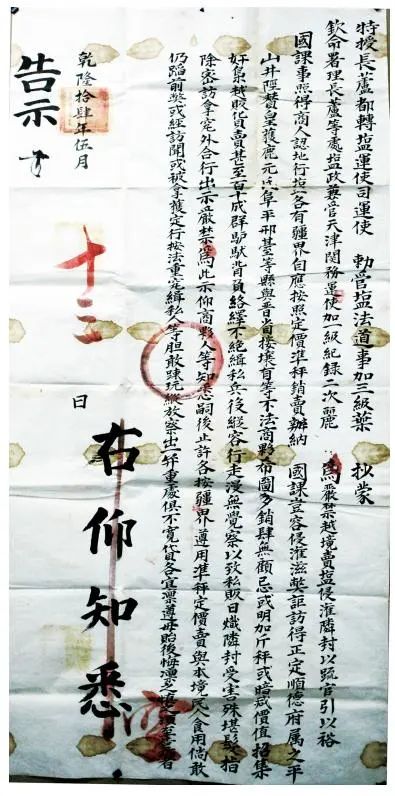 特授長蘆都轉塩運使司運使 勅管塩法道事加三級葉 抄蒙
欽命署理長蘆等處塩政兼管天津関務運使加一級紀錄二次麗 為嚴禁越境賣塩侵灌隣封以疏官引以裕
國課事照得商人認地行塩各有疆界自應按照定價準秤銷賣辦納 國課豈容侵灌滋獘訪得正定順德府属之平
山井陘賛皇獲鹿元氏阜平邢臺等縣與晋省接壤有等不法商夥布圖多銷肆無顧忌或明加斤秤或暗减價值招集
奸梟越販貨賣甚至百十成群馿馱背負絡繹不絕緝私兵役縱容行走漫無覺察以致私販日熾隣封受害殊堪髮指
除密訪拿究外合行出示嚴禁為此示仰商夥人等知悉嗣後止許各按疆界遵用準秤定價賣與本境民人食用倘敢
仍蹈前獘或經訪聞或被拿獲定行按法重究緝私人等胆敢踈玩縱放察出一并重處俱不寛貸各宜凛遵毋貽後悔
右仰知悉
乾隆拾肆年伍月 十三 日
告示